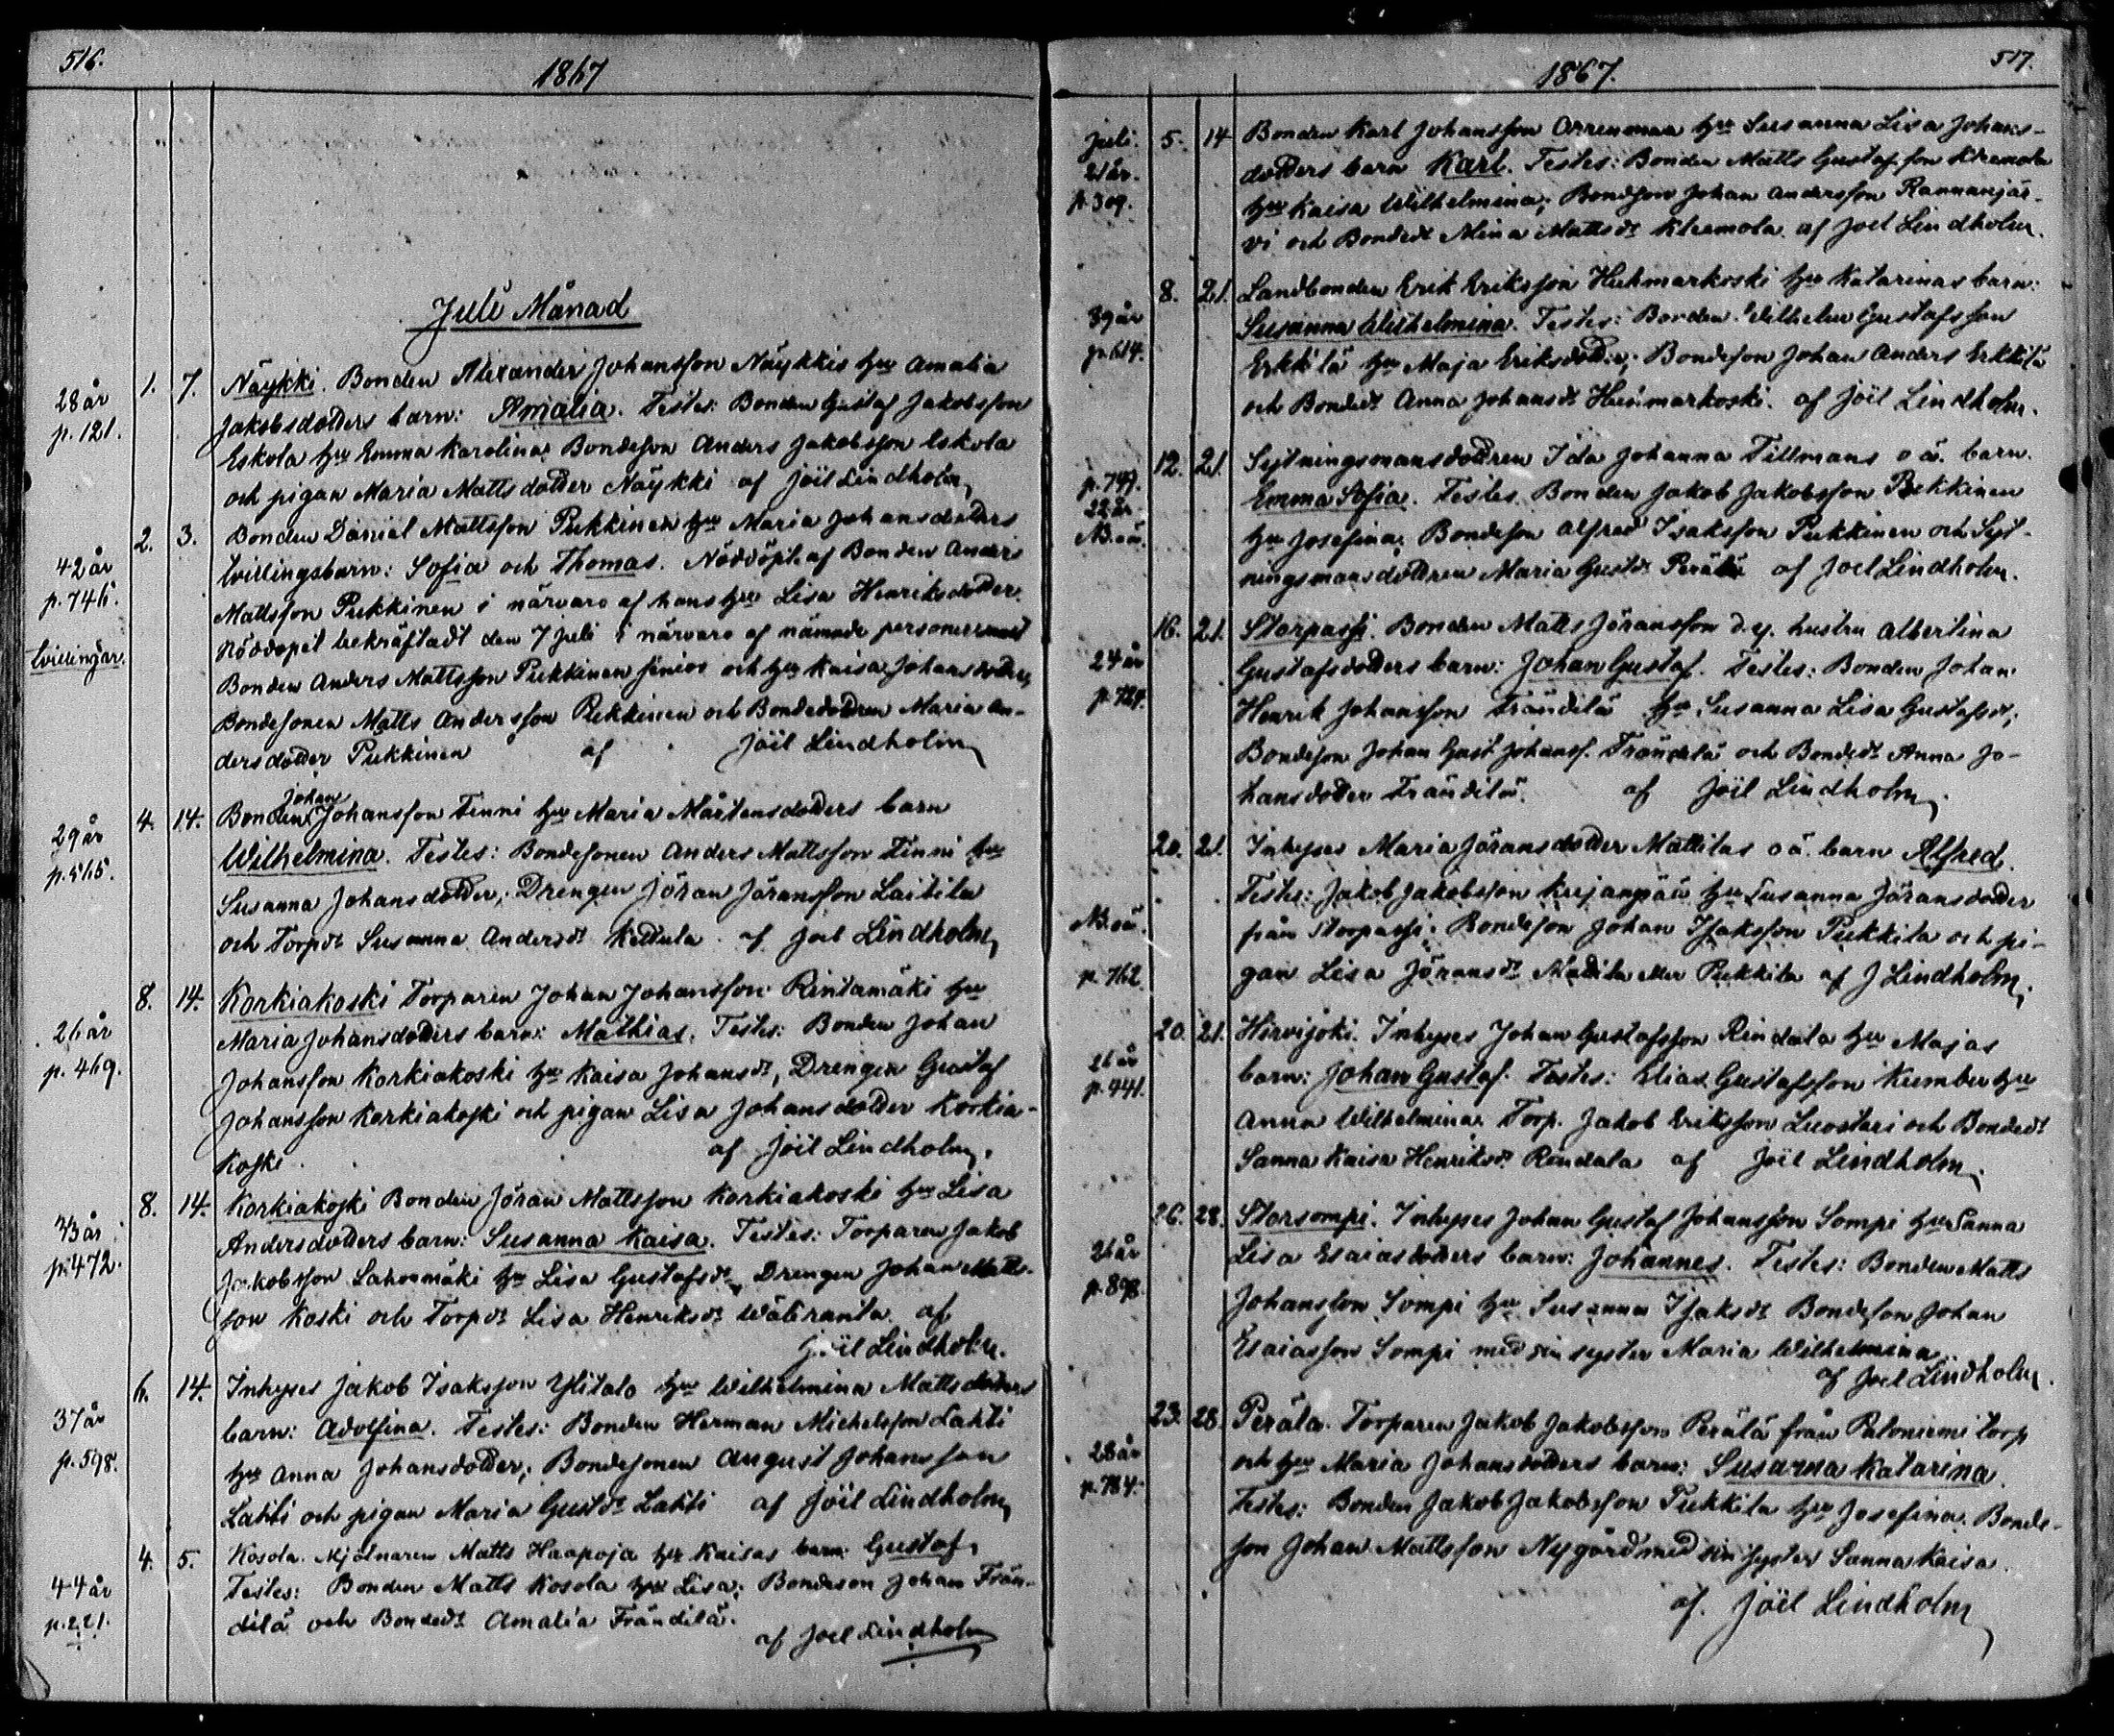 516.
1867
Juli Månad
28 år
p. 121.
1. 7. Näykki. Bonden Alexander Johansson Näykkis hu Amalia
Jakobsdotters barn: Amalia. Testes: Bonden Gustaf Jakobsson
Eskola hu Emma Karolina; Bondeson Anders Jakobsson Eskola
och pigan Maria Mattsdotter Näykki af Joël Lindholm
42 år
p. 746.
tvillingar.
2. 3. Bonden Daniel Mattsson Pukkinen hu Maria Johansdotters
tvillingsbarn: Sofia och Thomas. Nöddöpt. af Bonden Anders
Mattsson Pukkinen i närvaro af hans hu Lisa Henriksdotter.
Nödopet bekräftadt den 7 juli i närvaro af nämnde personer samt
Bonden Anders Mattsson Pukkinen senior och hu Kaisa Johansdotter,
Bondesonen Matts Andersson Pukkinen och Bondedottren Maria An-
dersdotter Pukkinen af Joël Lindholm
29 år
p. 565.
Johan
4. 14. Bonden Johansson Tenni hu Maria Mårtensdotters barn
Wilhelmina. Testes: Bondesonen Anders Mattsson Tinni hu
Susanna Johansdotter; Drengen Jöran Jöransson Laitila
och Torpdt Susanna Andersdt Kettula. af Joel Lindholm
26 år
p. 469.
8. 14. Korkiakoski Torparen Johan Johansson Rintamäki hu
Maria Johansdotters barn: Mathias. Testes: Bonden Johan
Johansson Korkiakoski hu Kaisa Johansdt, Drengen Gustaf
Johansson Korkiakoski och pigan Lisa Johansdotter Korkia-
koski. af Joël Lindholm.
43 år
p. 472.
8. 14. Korkiakoski Bonden Jöran Mattsson Korkiakoski hu Lisa
Andersdotters barn: Susanna Kaisa. Testes: Torparen Jakob
Jakobsson Lahonmäki hu Lisa Gustafsdt, Drengen Johan Matts-
son Koski och Torpdt Lisa Henriksdt Wäliranta. af
Joël Lindholm.
37 år
p. 598.
6. 14. Inhyses Jakob Isaksson Ylitalo hu Wilhelmina Mattsdotters
barn: Adolfina. Testes: Bonden Herman Michelsson Lahti
hu Anna Johansdotter; Bondesonen August Johansson
Lahti och pigan Maria Gustdt Lahti af Joël Lindholm
44 år
p. 221.
4. 5. Kosola. Mjölnaren Matts Haapoja hu Kaisas barn: Gustaf.
Testes: Bonden Matts Kosola hu Lisa; Bondeson Johan Frän-
dilä och Bondedt Amalia Frändilä.
af Joel Lindholm
517.
1867.
Juli.
21 år.
p. 309.
5. 14 Bonden Karl Johansson Orrenmaa hu Susanna Lisa Johans-
dotters barn Karl. Testes: Bonden Matts Gustafsson Klemola
hu Kaisa Wilhelmina; Bondeson Johan Andersson Rannanjär-
vi och Bondedt Mina Mattsdt Klemola. af Joel Lindholm.
39 år
p. 614.
8. 21. Landbonden Erik Eriksson Huhmarkoski hu Katarinas barn:
Susanna Wilhelmina. Testes: Bonden Wilhelm Gustafsson
Erkkilä hu Maja Eriksdotter; Bondeson Johan Anders Erkkilä
och Bondedt Anna Johansdt Huhmarkoski. af Joël Lindholm.
p. 747.
22 år.
NB. oä.
12. 21. Sytningsmansdottren Ida Johanna Tillmans o ä. barn.
Emma Sofia. Testes. Bonden Jakob Jakobsson Pukkinen
hu Josefina; Bondeson Alfred Isaksson Pukkinen och Syt-
ningsmansdottren Maria Gustdt Perälä af Joel Lindholm.
24 år
p. 724.
16. 21. Storpassi. Bonden Matts Jöransson d.y. hustru Albertina
Gustafsdotters barn: Johan Gustaf. Testes: Bonden Johan
Henrik Johansson Frändilä hu Susanna Lisa Gustafsdt;
Bondeson Johan Gust Johanss. Frändilä och Bondedt Anna Jo-
hansdotter Frändilä. af Joël Lindholm.
NB. oä.
p. 762
20. 21. Inhyses Maria Jöransdotter Mattilas o ä. barn Alfred.
Testes: Jakob Jakobsson Kujanpää hu Susanna Jöransdotter
från Storpassi; Bondeson Johan Isaksson Pukkila och pi-
gan Lisa Jöransdt Mattila eller Pukkila af J Lindholm.
26 år
p. 441.
20. 21. Hirvijoki. Inhyses Johan Gustafsson Rindala hu Majas
barn: Johan Gustaf. Testes: Elias Gustafsson Kumbu hu
Anna Wilhelmina; Torp. Jakob Eriksson Luostari och Bondedt
Sanna Kaisa Henriksdt Rindala af Joël Lindholm.
26 år
p. 898.
26. 28. Storsompi. Inhyses Johan Gustaf Johansson Sompi hu Sanna
Lisa Esaiasdotters barn: Johannes. Testes: Bonden Matts
Johansson Sompi hu Susanna Isaksdt Bondeson Johan
Esaiasson Sompi med sin syster Maria Wilhelmina.
af Joel Lindholm.
28 år
p. 784.
23. 28. Perälä. Torparen Jakob Jakobsson Perälä från Paloniemi torp
och hu Maria Johansdotters barn: Susanna Katarina.
Testes: Bonden Jakob Jakobsson Pukkila hu Josefina. Bonde-
son Johan Mattsson Nygård med sin syster Sanna Kaisa.
af. Joël Lindholm